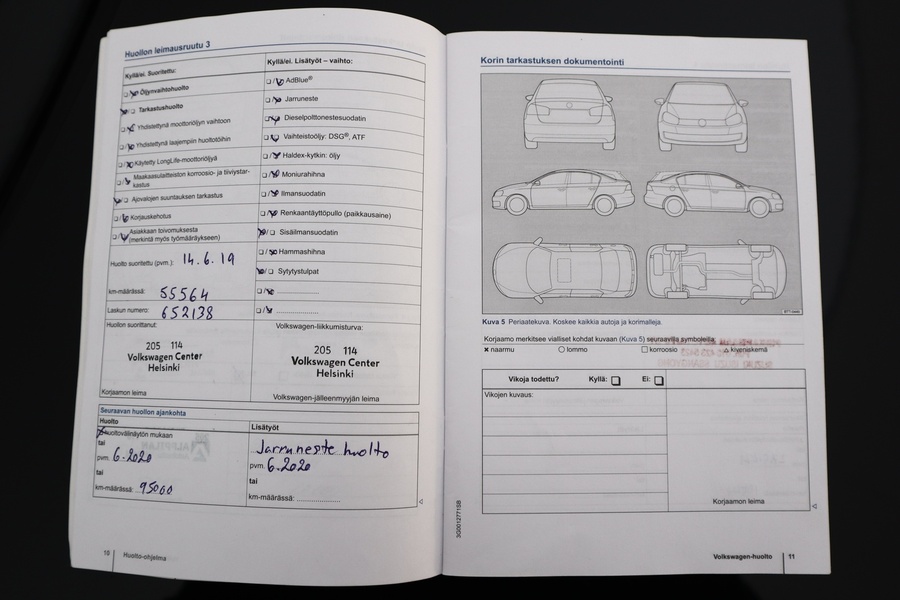 Huollon leimausruutu 3
Kyllä/ei. Suoritettu:
Öljynvaihtohuolto
Tarkastushuolto
Yhdistettynä moottoriöljyn vaihtoon
Yhdistettynä laajempiin huoltotöihin
Käytetty LongLife-moottoriöljyä
Maakaasulaitteiston korroosio- ja tiiviystar-
kastus
Ajovalojen suuntauksen tarkastus
Korjauskehotus
Asiakkaan toivomuksesta
(merkintä myös työmääräykseen)
Huolto suoritettu (pvm.): 14.6.19
km-määrässä: 55564
Laskun numero: 652138
Huollon suorittanut:
205 114
Volkswagen Center
Helsinki
Korjaamon leima
Kyllä/ei. Lisätyöt – vaihto:
AdBlue®
Jarruneste
Dieselpolttonestesuodatin
Vaihteistoöljy: DSG®, ATF
Haldex-kytkin: öljy
Moniurahihna
Ilmansuodatin
Renkaantäyttöpullo (paikkausaine)
Sisäilmansuodatin
Hammashihna
Sytytystulpat
Volkswagen-liikkumisturva:
205 114
Volkswagen Center
Helsinki
Volkswagen-jälleenmyyjän leima
Seuraavan huollon ajankohta
Huolto
huoltovälinäytön mukaan
tai
pvm: 6.2020
tai
km-määrässä: 95000
Lisätyöt
Jarruneste huolto
pvm. 6.2020
tai
km-määrässä:
10 Huolto-ohjelma
Korin tarkastuksen dokumentointi
Kuva 5 Periaatekuva. Koskee kaikkia autoja ja korimalleja.
Korjaamo merkitsee vialliset kohdat kuvaan (Kuva 5) seuraavilla symboleilla:
naarmu lommo korroosio kiveniskemä
Vikoja todettu? Kyllä: Ei:
Vikojen kuvaus:
Korjaamon leima
3G0012771SB
Volkswagen-huolto 11